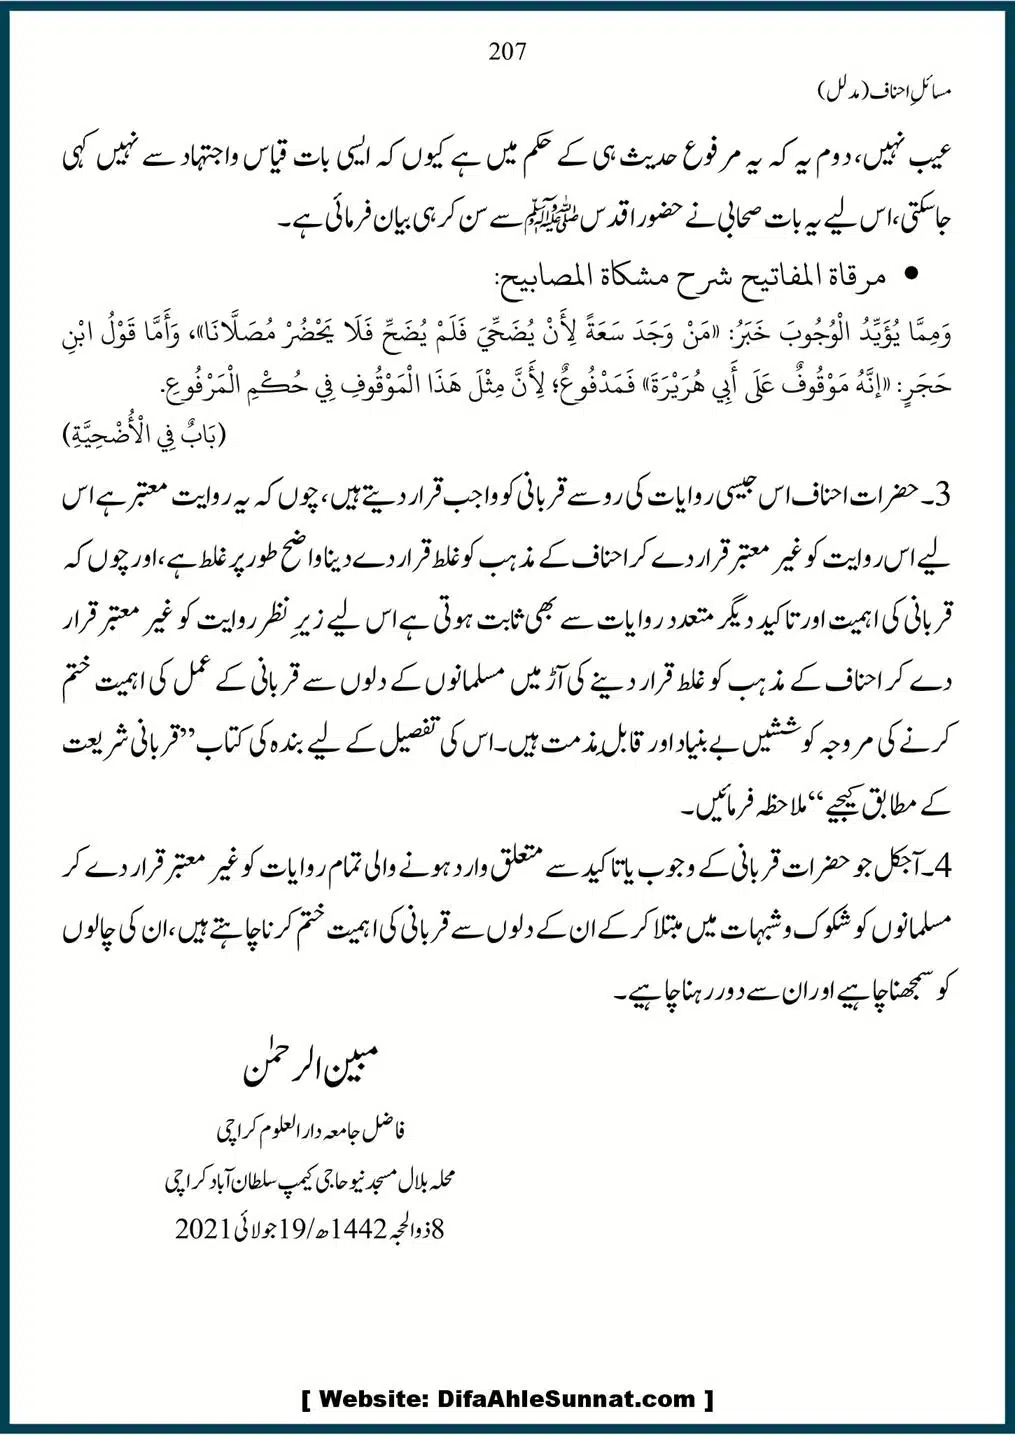 207
مسائلِ احناف (مدلل)
عیب نہیں، دوم یہ کہ یہ مرفوع حدیث ہی کے حکم میں ہے کیوں کہ ایسی بات قیاس واجتہاد سے نہیں کہی
جاسکتی، اس لیے یہ بات صحابی نے حضور اقدس ﷺ سے سن کر ہی بیان فرمائی ہے۔
• مرقاة المفاتيح شرح مشكاة المصابيح:
وَمِمَّا يُؤَيِّدُ الْوُجُوبَ خَبَرُ: «مَنْ وَجَدَ سَعَةً لِأَنْ يُضَحِّيَ فَلَمْ يُضَحِّ فَلَا يَحْضُرْ مُصَلَّانَا»، وَأَمَّا قَوْلُ ابْنِ
حَجَرٍ: «إِنَّهُ مَوْقُوفٌ عَلَى أَبِي هُرَيْرَةَ» فَمَدْفُوعٌ؛ لِأَنَّ مِثْلَ هَذَا الْمَوْقُوفِ فِي حُكْمِ الْمَرْفُوعِ.
(بَابٌ فِي الْأُضْحِيَّةِ)
3۔ حضرات احناف اس جیسی روایات کی رو سے قربانی کو واجب قرار دیتے ہیں، چوں کہ یہ روایت معتبر ہے اس
لیے اس روایت کو غیر معتبر قرار دے کر احناف کے مذہب کو غلط قرار دے دینا واضح طور پر غلط ہے، اور چوں کہ
قربانی کی اہمیت اور تاکید دیگر متعدد روایات سے بھی ثابت ہوتی ہے اس لیے زیرِ نظر روایت کو غیر معتبر قرار
دے کر احناف کے مذہب کو غلط قرار دینے کی آڑ میں مسلمانوں کے دلوں سے قربانی کے عمل کی اہمیت ختم
کرنے کی مروجہ کوششیں بے بنیاد اور قابلِ مذمت ہیں۔ اس کی تفصیل کے لیے بندہ کی کتاب ’’قربانی شریعت
کے مطابق کیجیے‘‘ ملاحظہ فرمائیں۔
4۔ آجکل جو حضرات قربانی کے وجوب یا تاکید سے متعلق وارد ہونے والی تمام روایات کو غیر معتبر قرار دے کر
مسلمانوں کو شکوک وشبہات میں مبتلا کر کے ان کے دلوں سے قربانی کی اہمیت ختم کرنا چاہتے ہیں، ان کی چالوں
کو سمجھنا چاہیے اور ان سے دور رہنا چاہیے۔
مبین الرحمٰن
فاضل جامعہ دار العلوم کراچی
محلہ بلال مسجد نیو حاجی کیمپ سلطان آباد کراچی
8 ذو الحجہ 1442ھ/ 19 جولائی 2021
[ Website: DifaAhleSunnat.com ]